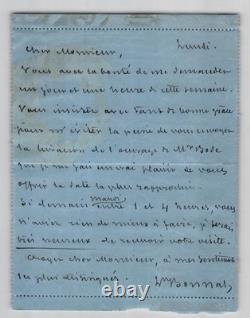 Lundi.
Cher Monsieur,
Vous avez la bonté de me demander
un jour et une heure de cette semaine.
Vous insistez avec tant de bonne grâce
pour m'éviter la peine de vous envoyer
la livraison de l'ouvrage de Mr Bode
que je me fais un vrai plaisir de vous
offrir la date la plus rapprochée.
mardi
Si demain entre 1 et 4 heures vous
n'aviez rien de mieux à faire, je serais
très heureux de recevoir votre visite.
Croyez cher Monsieur, à mes sentiments
les plus distingués.
Bonnat